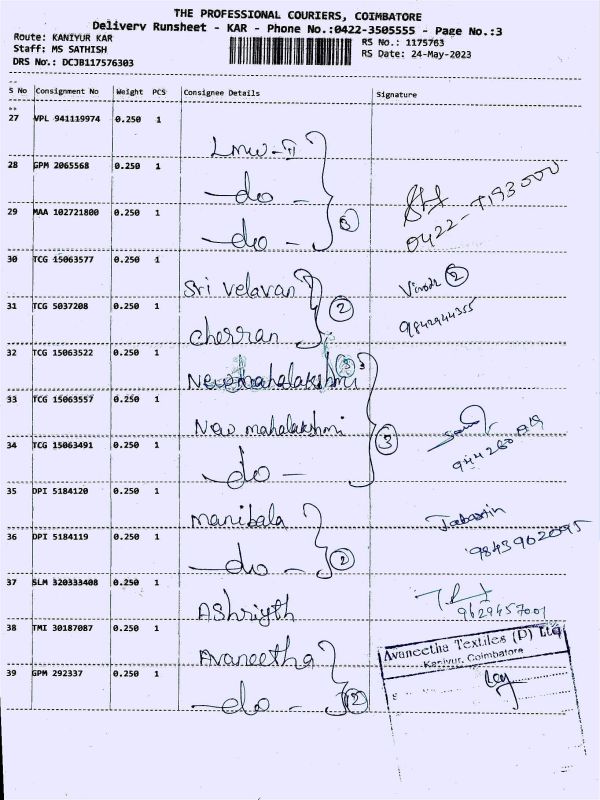 THE PROFESSIONAL COURIERS, COIMBATORE
Delivery Runsheet - KAR - Phone No.:0422-3505555 - Page No.:3
Route: KANIYUR KAR
RS No.: 1175763
Staff: MS SATHISH
RS Date: 24-May-2023
DRS No.: DCJB117576303
S No Consignment No Weight PCS Consignee Details Signature
27 VPL 941119974 0.250 1
Lmw-II
28 GPM 2065568 0.250 1
-do-
29 MAA 102721800 0.250 1
-do- 3
0422-7193000
30 TCG 15063577 0.250 1
Sri velavan Vinoth 2
31 TCG 5037208 0.250 1
cherran 2 9842944355
32 TCG 15063522 0.250 1
New mahalakshmi
33 TCG 15063557 0.250 1
New mahalakshmi
34 TCG 15063491 0.250 1
-do- 3
35 DPI 5184120 0.250 1
manibala
36 DPI 5184119 0.250 1
-do- 2 9843962095
37 SLM 320333408 0.250 1
Ashriyth 9629457001
38 TMI 30187087 0.250 1
Avaneetha
Avaneetha Textiles (P) Ltd
Kaniyur, Coimbatore
39 GPM 292337 0.250 1
-do- 2